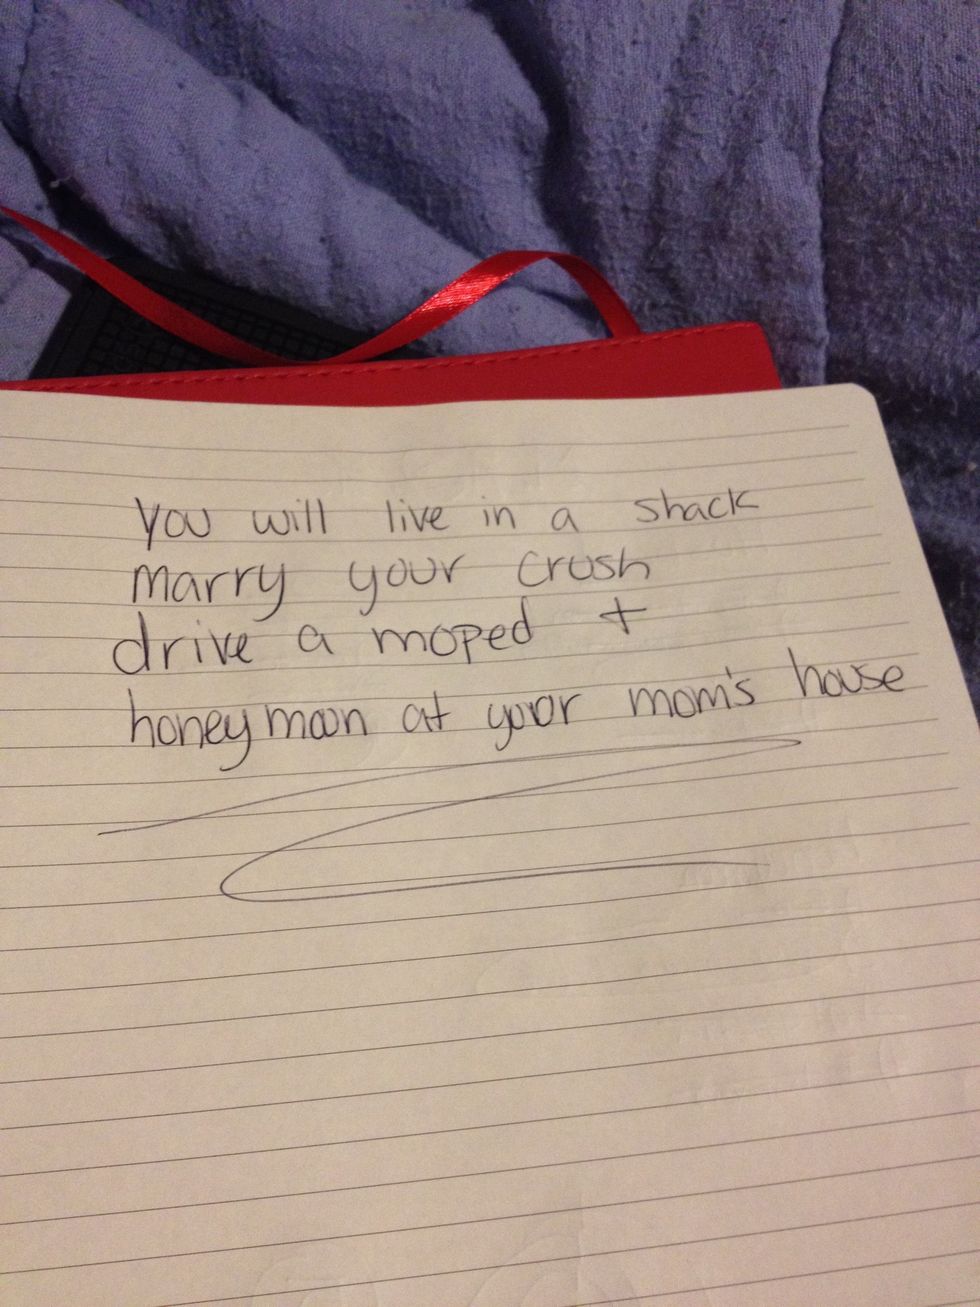 You will live in a shack
marry your crush
drive a moped +
honeymoon at your mom's house